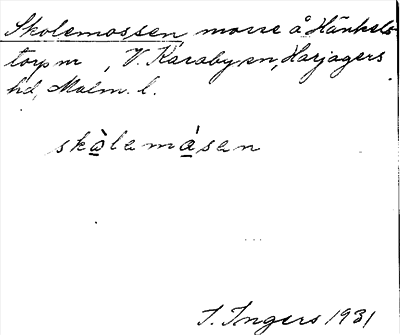 Skolemossen mosse å Hänkels-
torp nr , V. Karaby sn, Harjagers
hd, Malm. l.
skòlemåsen
I. Ingers 1931